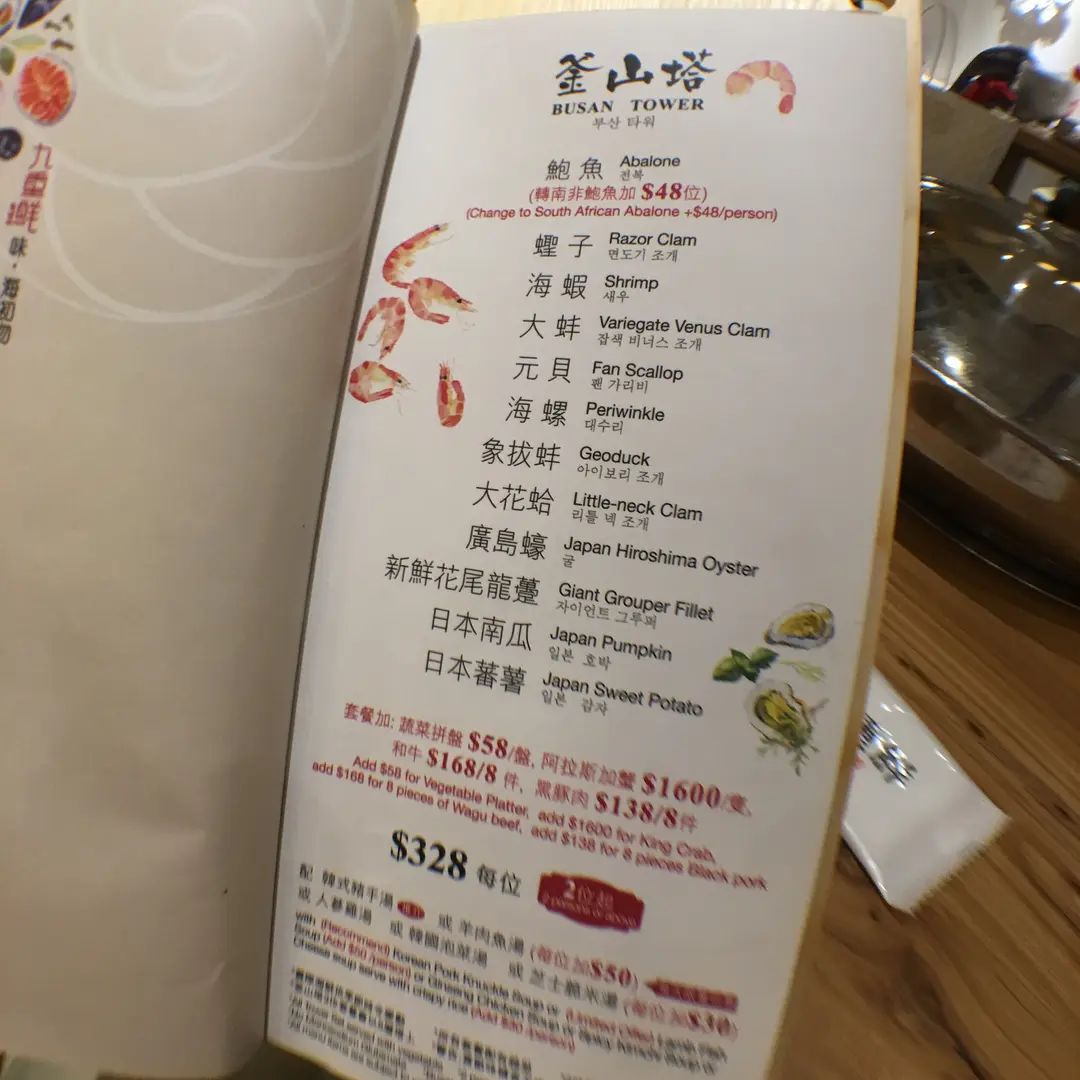 九重鮮
味・海初
釜山塔
BUSAN TOWER
부산 타워
鮑魚 Abalone
전복
(轉南非鮑魚加 $48位)
(Change to South African Abalone +$48/person)
蟶子 Razor Clam
면도기 조개
海蝦 Shrimp
새우
大蚌 Variegate Venus Clam
잡색 비너스 조개
元貝 Fan Scallop
팬 가리비
海螺 Periwinkle
대수리
象拔蚌 Geoduck
아이보리 조개
大花蛤 Little-neck Clam
리틀 넥 조개
廣島蠔 Japan Hiroshima Oyster
굴
新鮮花尾龍躉 Giant Grouper Fillet
자이언트 그루퍼
日本南瓜 Japan Pumpkin
일본 호박
日本蕃薯 Japan Sweet Potato
일본 감자
套餐加: 蔬菜拼盤 $58/盤, 阿拉斯加蟹 $1600/隻,
和牛 $168/8 件, 黑豚肉 $138/8件
Add $58 for Vegetable Platter, add $1600 for King Crab,
add $168 for 8 pieces of Wagu beef, add $138 for 8 pieces Black pork
$328 每位 2位起
2 persons or above
配 韓式豬手湯 推介 或 羊肉魚湯 (每位加$50)
或 人參雞湯 或 韓國泡菜湯 或 芝士脆米湯 (每位加$30)
with (Recommend) Korean Pork Knuckle Soup or (Limited Offer) Lamb Fish
Soup (Add $50 /person) or Ginseng Chicken Soup or Spicy Kimchi Soup or
Cheese soup serve with crispy rice (Add $30 /person)